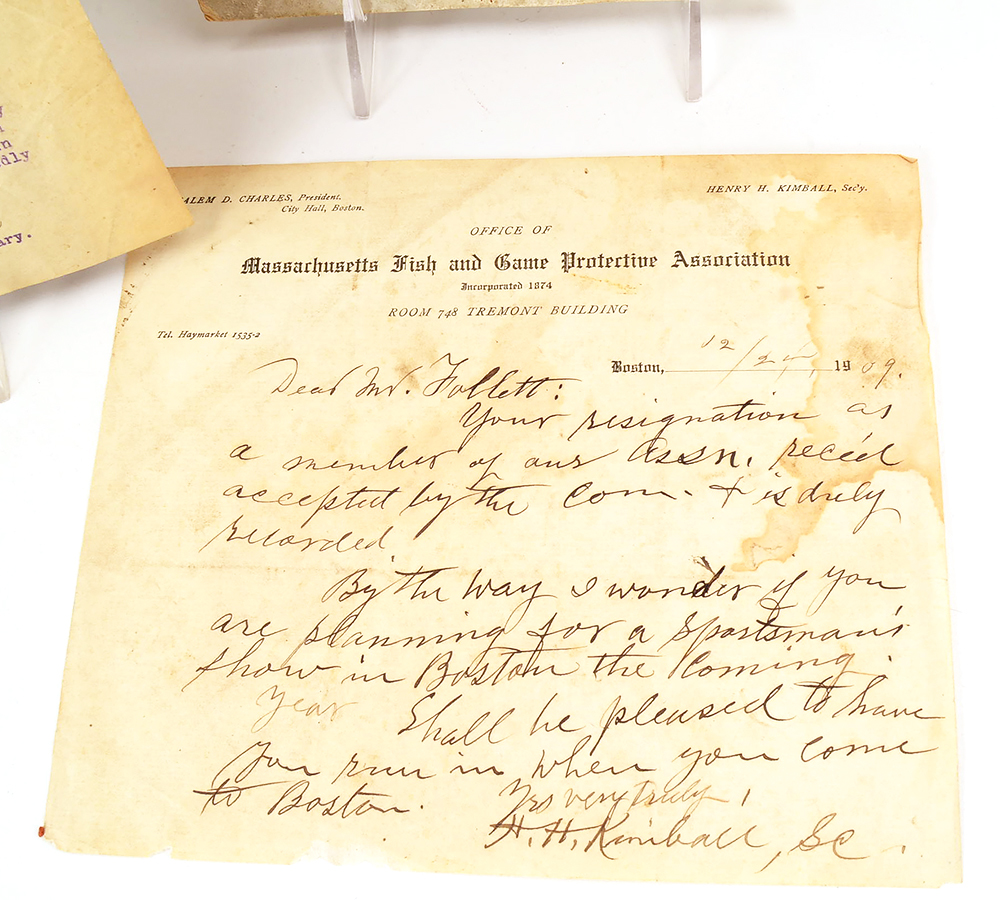 dly
ary.
ALEM D. CHARLES, President.
City Hall, Boston.
HENRY H. KIMBALL, Sec'y.
OFFICE OF
Massachusetts Fish and Game Protective Association
Incorporated 1874
ROOM 748 TREMONT BUILDING
Tel. Haymarket 1535-2
Boston, 12/24, 1909.
Dear Mr. Follett:
Your resignation as
a member of our Assn. rec'd
accepted by the Com. & is duly
recorded
By the way I wonder if you
are planning for a Sportsman's
show in Boston the Coming
Year Shall be pleased to have
You run in when you come
to Boston.
Yrs very truly,
H. H. Kimball, Sc.